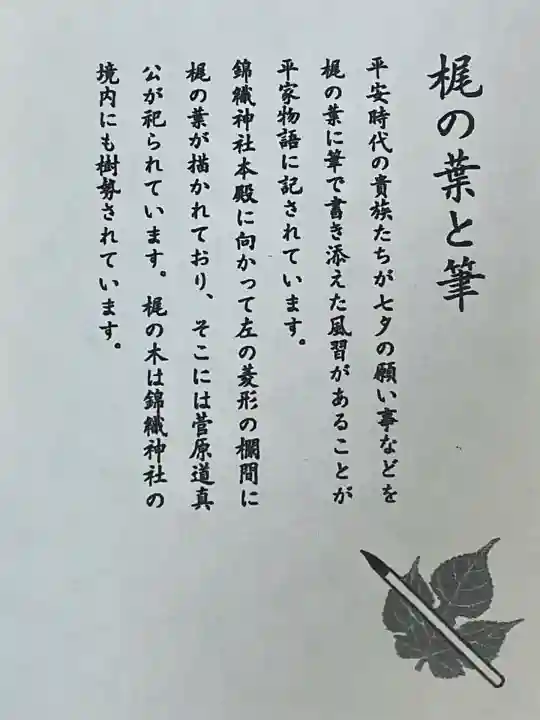 梶の葉と筆
平安時代の貴族たちが七夕の願い事などを
梶の葉に筆で書き添えた風習があることが
平家物語に記されています。
錦織神社本殿に向かって左の菱形の欄間に
梶の葉が描かれており、そこには菅原道真
公が祀られています。梶の木は錦織神社の
境内にも樹勢されています。